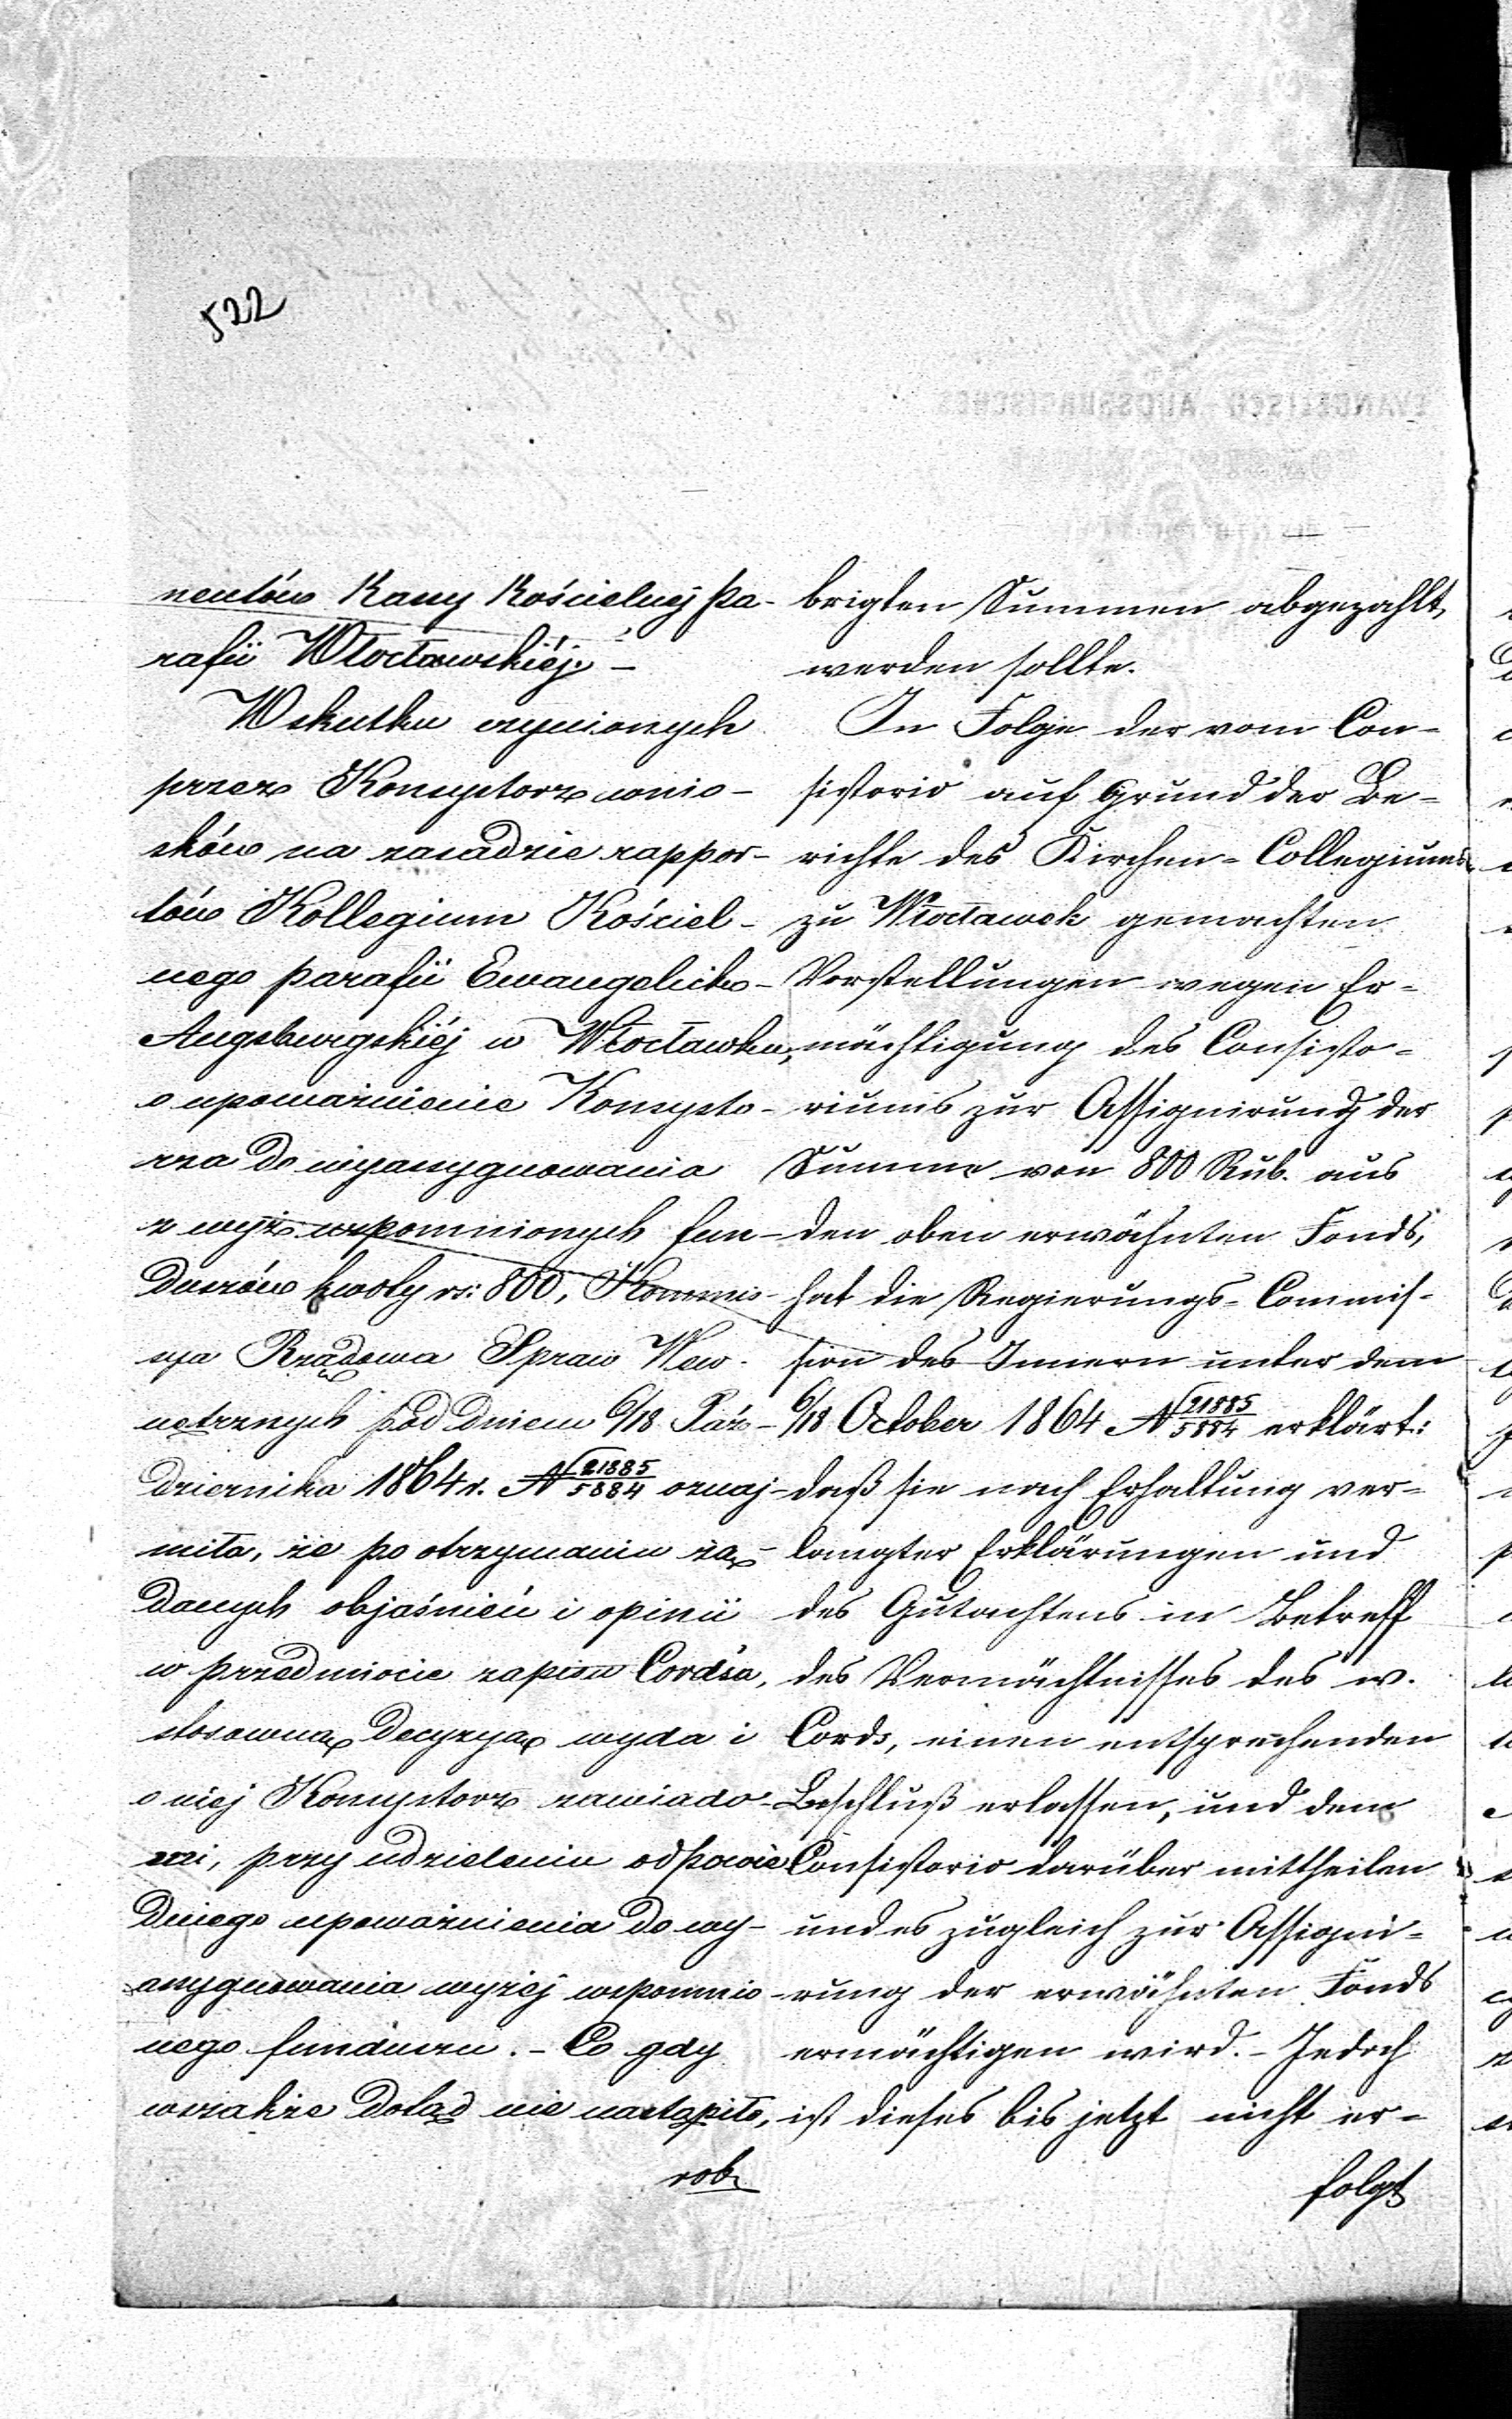 522
nentów Kassy Kościelnéj pa-
rafii Włocławskiéj. -
Wskutku czynionych
przez Konsystorz wnio-
sków na zasadzie rappor-
tów Kollegium Kościel-
nego parafii Ewangelicko-
Augsburgskiéj w Włocławku,
o upoważnienie Konsysto-
rza do wyassygnowania
z wyż wspomnionych fun-
duszów kwoty rs: 800, Kommis-
sya Rządowa Spraw Wew-
nętrznych pod dniem 6/18 Paź-
dziernika 1864 r. N 21885/5884 oznaj-
miła, że po otrzymaniu żą-
danych objaśnień i opinii
w przedmiocie zapisu Cords'a,
stosowną decyzyą wyda i
o niej Konsystorz zawiado-
mi, przy udzieleniu odpowie
dniego upoważnienia do wy-
assygnowania wyżej wspomnio
nego funduszu. - Co gdy
wszakże dotąd nie nastąpiło,
rob.
brigten Summen abgezahlt
werden sollte.
In Folge der vom Con-
sistorio auf Grund der Be-
richte des Kirchen-Collegiums
zu Włocławek gemachten
Vorstellungen wegen Er-
mächtigung des Consisto-
riums zur Assignirung der
Summe von 800 Rub. aus
den oben erwähnten Fonds,
hat die Regierungs-Commis-
sion des Innern unter dem
6/18 October 1864 N 21885/5884 erklärt:
daß sie nach Erhaltung ver-
langter Erklärungen und
des Gutachtens in Betreff
des Vermächtnisses des w.
Cords, einen entsprechenden
Beschluß erlassen, und dem
Consistorio darüber mittheilen
und es zugleich zur Assigni-
rung der erwähnten Fonds
ermächtigen wird. - Jedoch
ist dieses bis jetzt nicht er-
folgt